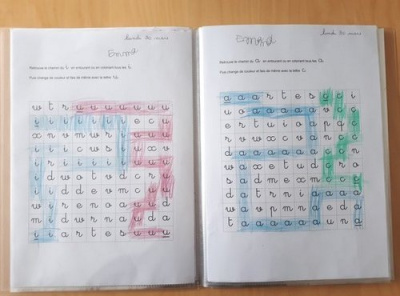 lundi 30 mars
Emma
Retrouve le chemin du i, en entourant ou en coloriant tous les i.
Puis change de couleur et fais de même avec la lettre u.
w t r u u u u u u
i i i i i i e c u
x n v m w r u u
i i i i c w s u x v
i r i i i i i u u
i d w o t v d c r
i i d d e v m c u
w i r e n o a u u
m i d w r n a u d a
i i a r s o a u u u
lundi 30 mars
Retrouve le chemin du a, en entourant ou en coloriant tous les a.
Puis change de couleur et fais de même avec la lettre c.
a a a r t e s c c i
u o a a a a v c u
e r t u i o r p q c
r c a v x a n c c
d a a a a a
w a x e t u d r o
s a t m e x m c c
d a t r n i a a a a
w a v p m n a e d a
a a a a a a u n a